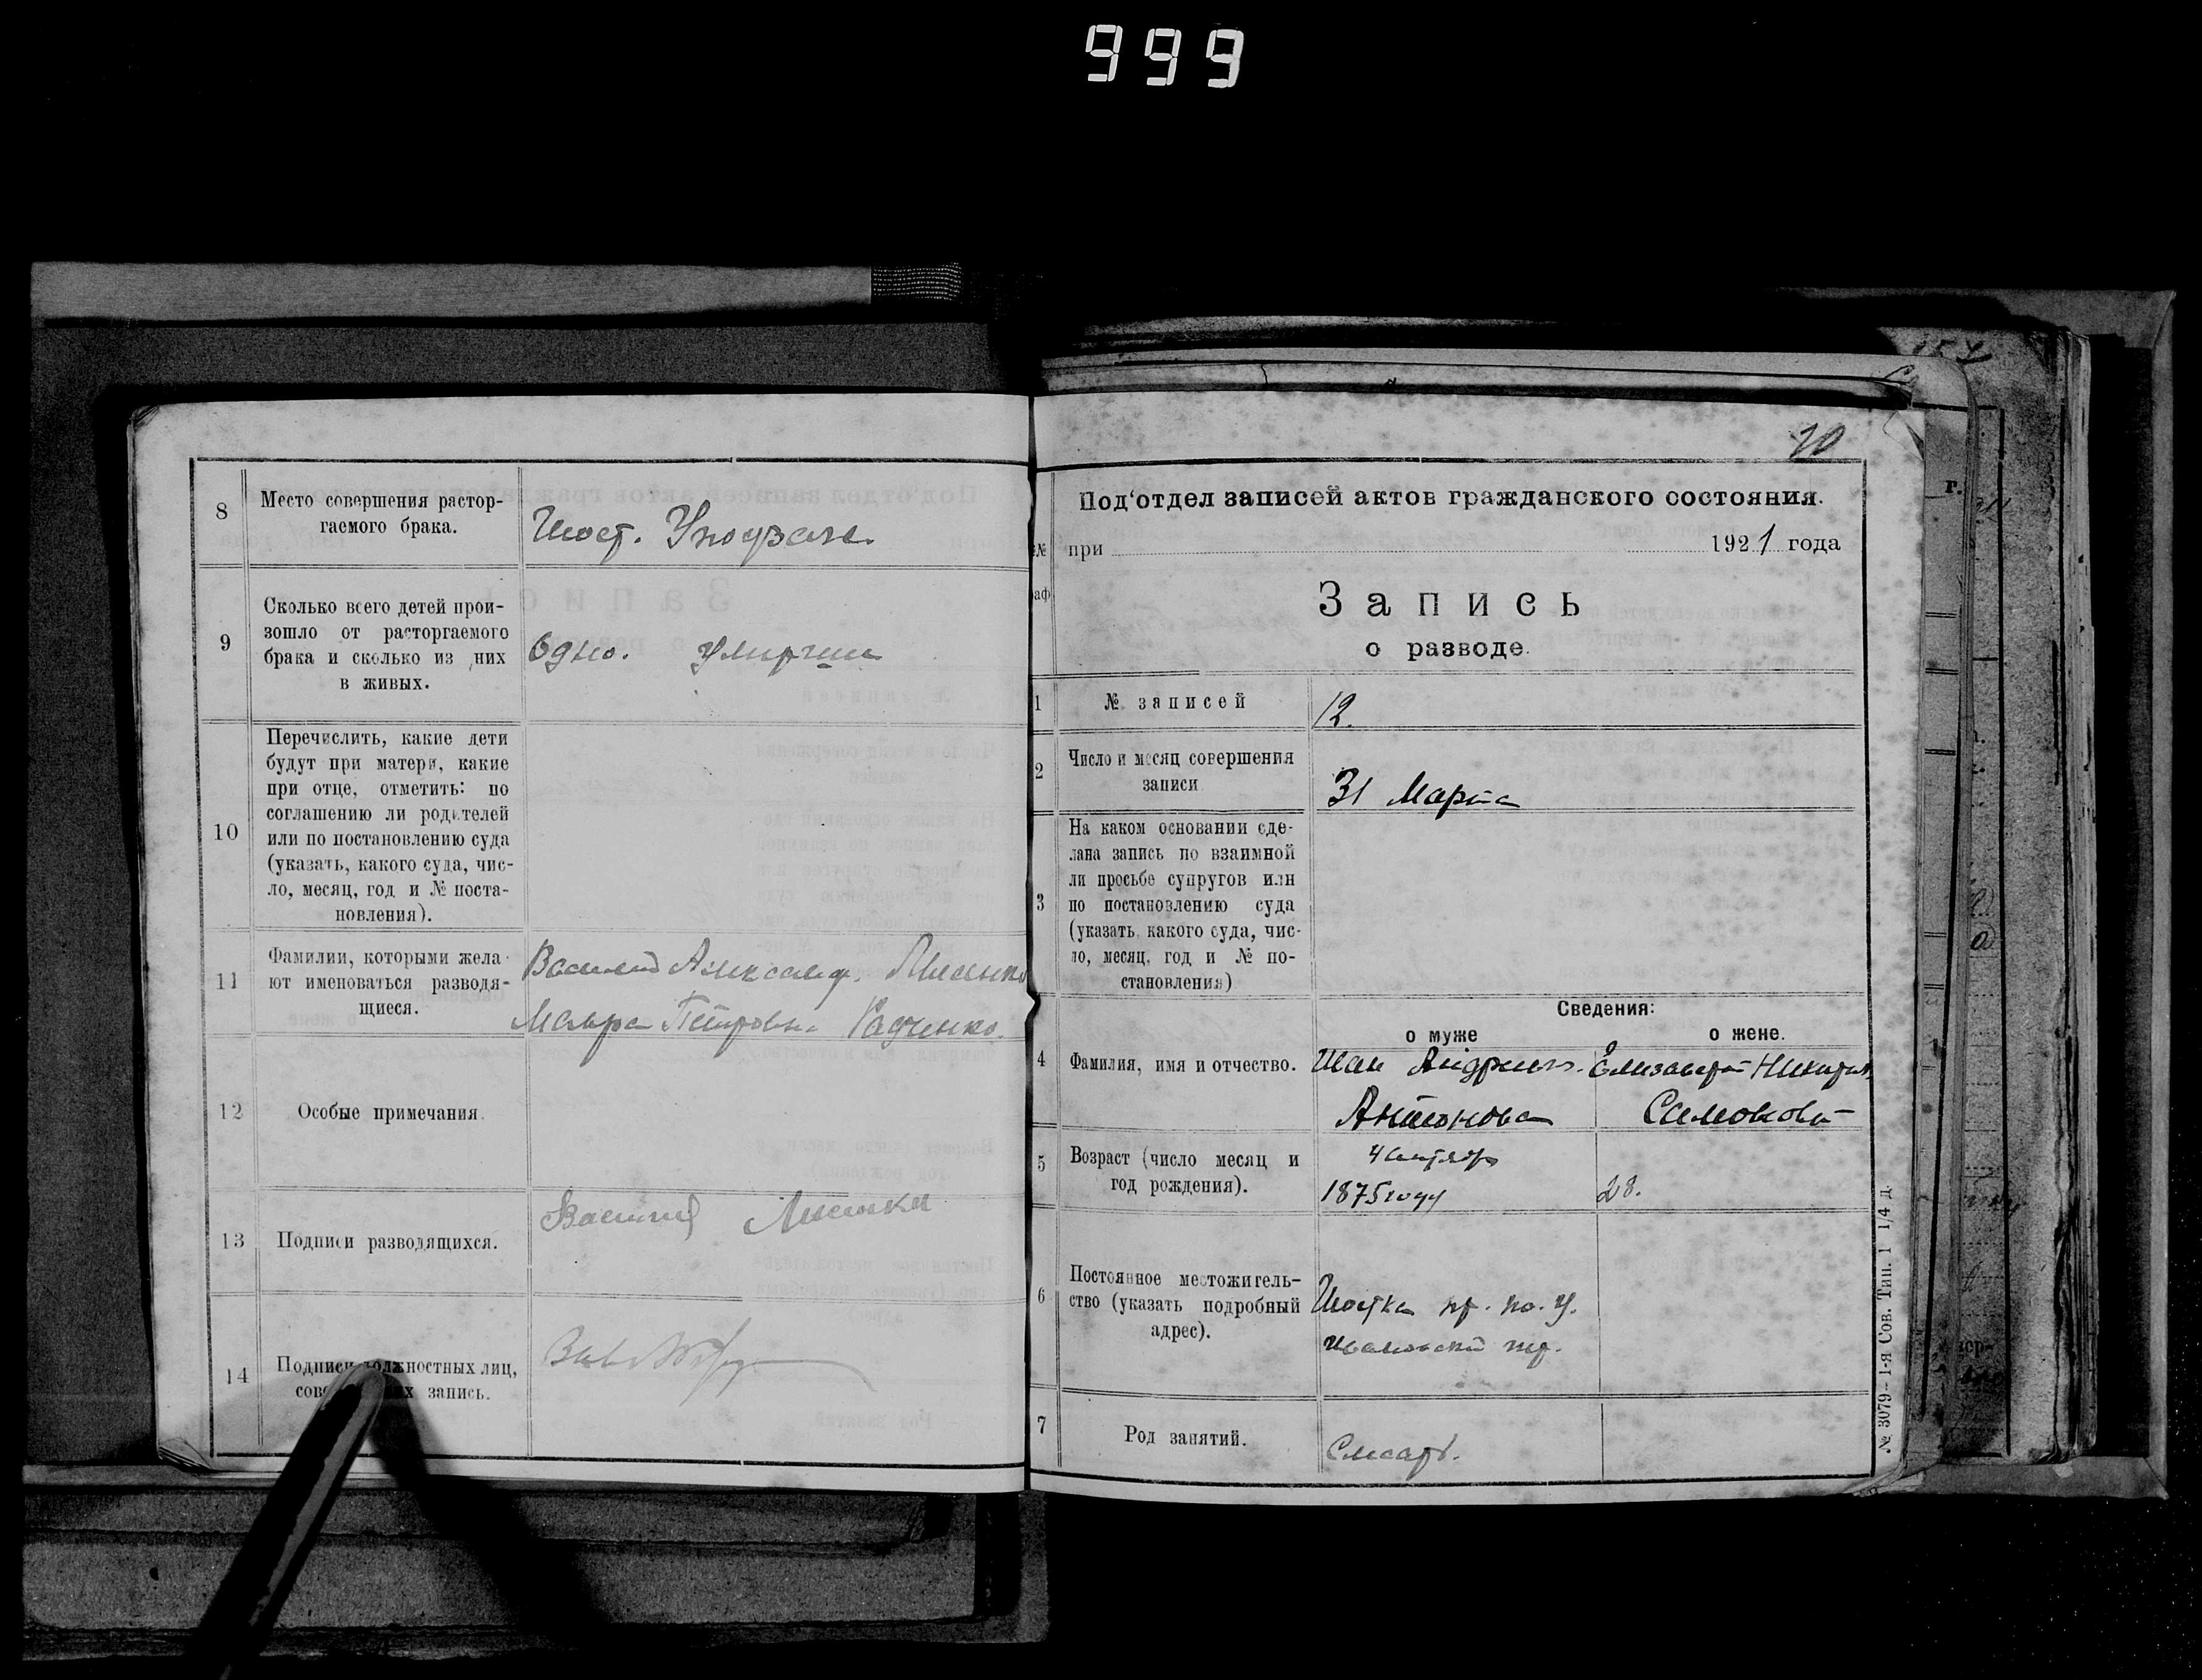 999
8
Место совершения растор-
гаемого брака.
Шост.
9
Сколько всего детей прои-
зошло от расторгаемого
брака и сколько из них
в живых.
Одно.
10
Перечислить, какие дети
будут при матери, какие
при отце, отметить: по
соглашению ли родителей
или по постановлению суда
(указать, какого суда, чис-
ло, месяц, год и № поста-
новления).
11
Фамилии, которыми жела-
ют именоваться разводя-
щиеся.
Василий Александ.
Мавра Петровна Радченко.
12
Особые примечания.
13
Подписи разводящихся.
Василий
14
Подписи должностных лиц,
запись.
20
Под‘отдел записей актов гражданского состояния.
№
при 1921 года
аф
Запись
о разводе.
1
№ записей
12.
2
Число и месяц совершения
записи
31 Марта
3
На каком основании сде-
лана запись по взаимной
ли просьбе супругов или
по постановлению суда
(указать какого суда, чис-
ло, месяц, год и № по-
становления)
Сведения:
о муже
о жене.
4
Фамилия, имя и отчество.
Антонова
5
Возраст (число месяц и
год рождения).
1875 году
28.
6
Постоянное местожитель-
ство (указать подробный
адрес).
Шостка
7
Род занятий.
Слесарь.
№ 3079—1-я Сов. Тип. 1 1/4 д.
г.